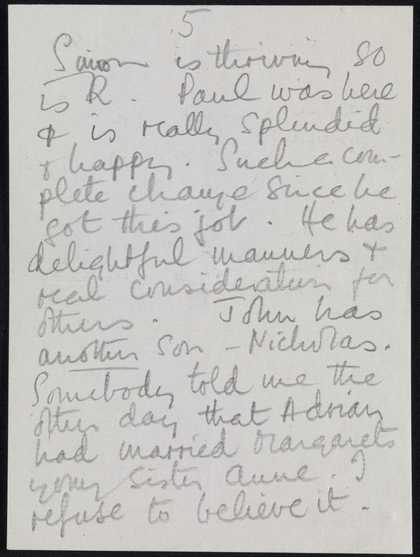 5
Simon is thriving so
is R. Paul was here
& is really splendid
& happy. Such a com-
plete change since he
got this job. He has
delightful manners &
real consideration for
others. John has
another son - Nicholas.
Somebody told me the
other day that Adrian
had married Margaret's
young sister Anne. I
refuse to believe it.